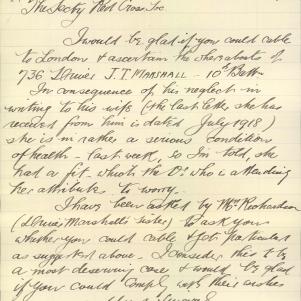 The Secty Red Cross Soc
I would be glad if you could cable
to London & ascertain the whereabouts of
736 Driver J.T. MARSHALL - 10th Battn
In consequence of his neglect in
writing to his wife (the last letter she has
received from him is dated July 1918)
she is in rather a serious condition
of health - last week, so I'm told, she
had a fit which the Dr who is attending
her attributes to worry.
I have been asked by Mrs Richardson
(Driver Marshall's sister) to ask you
whether you could cable & get particulars
as suggested above. I consider this to be
a most deserving case & would be glad
if you could comply with their wishes